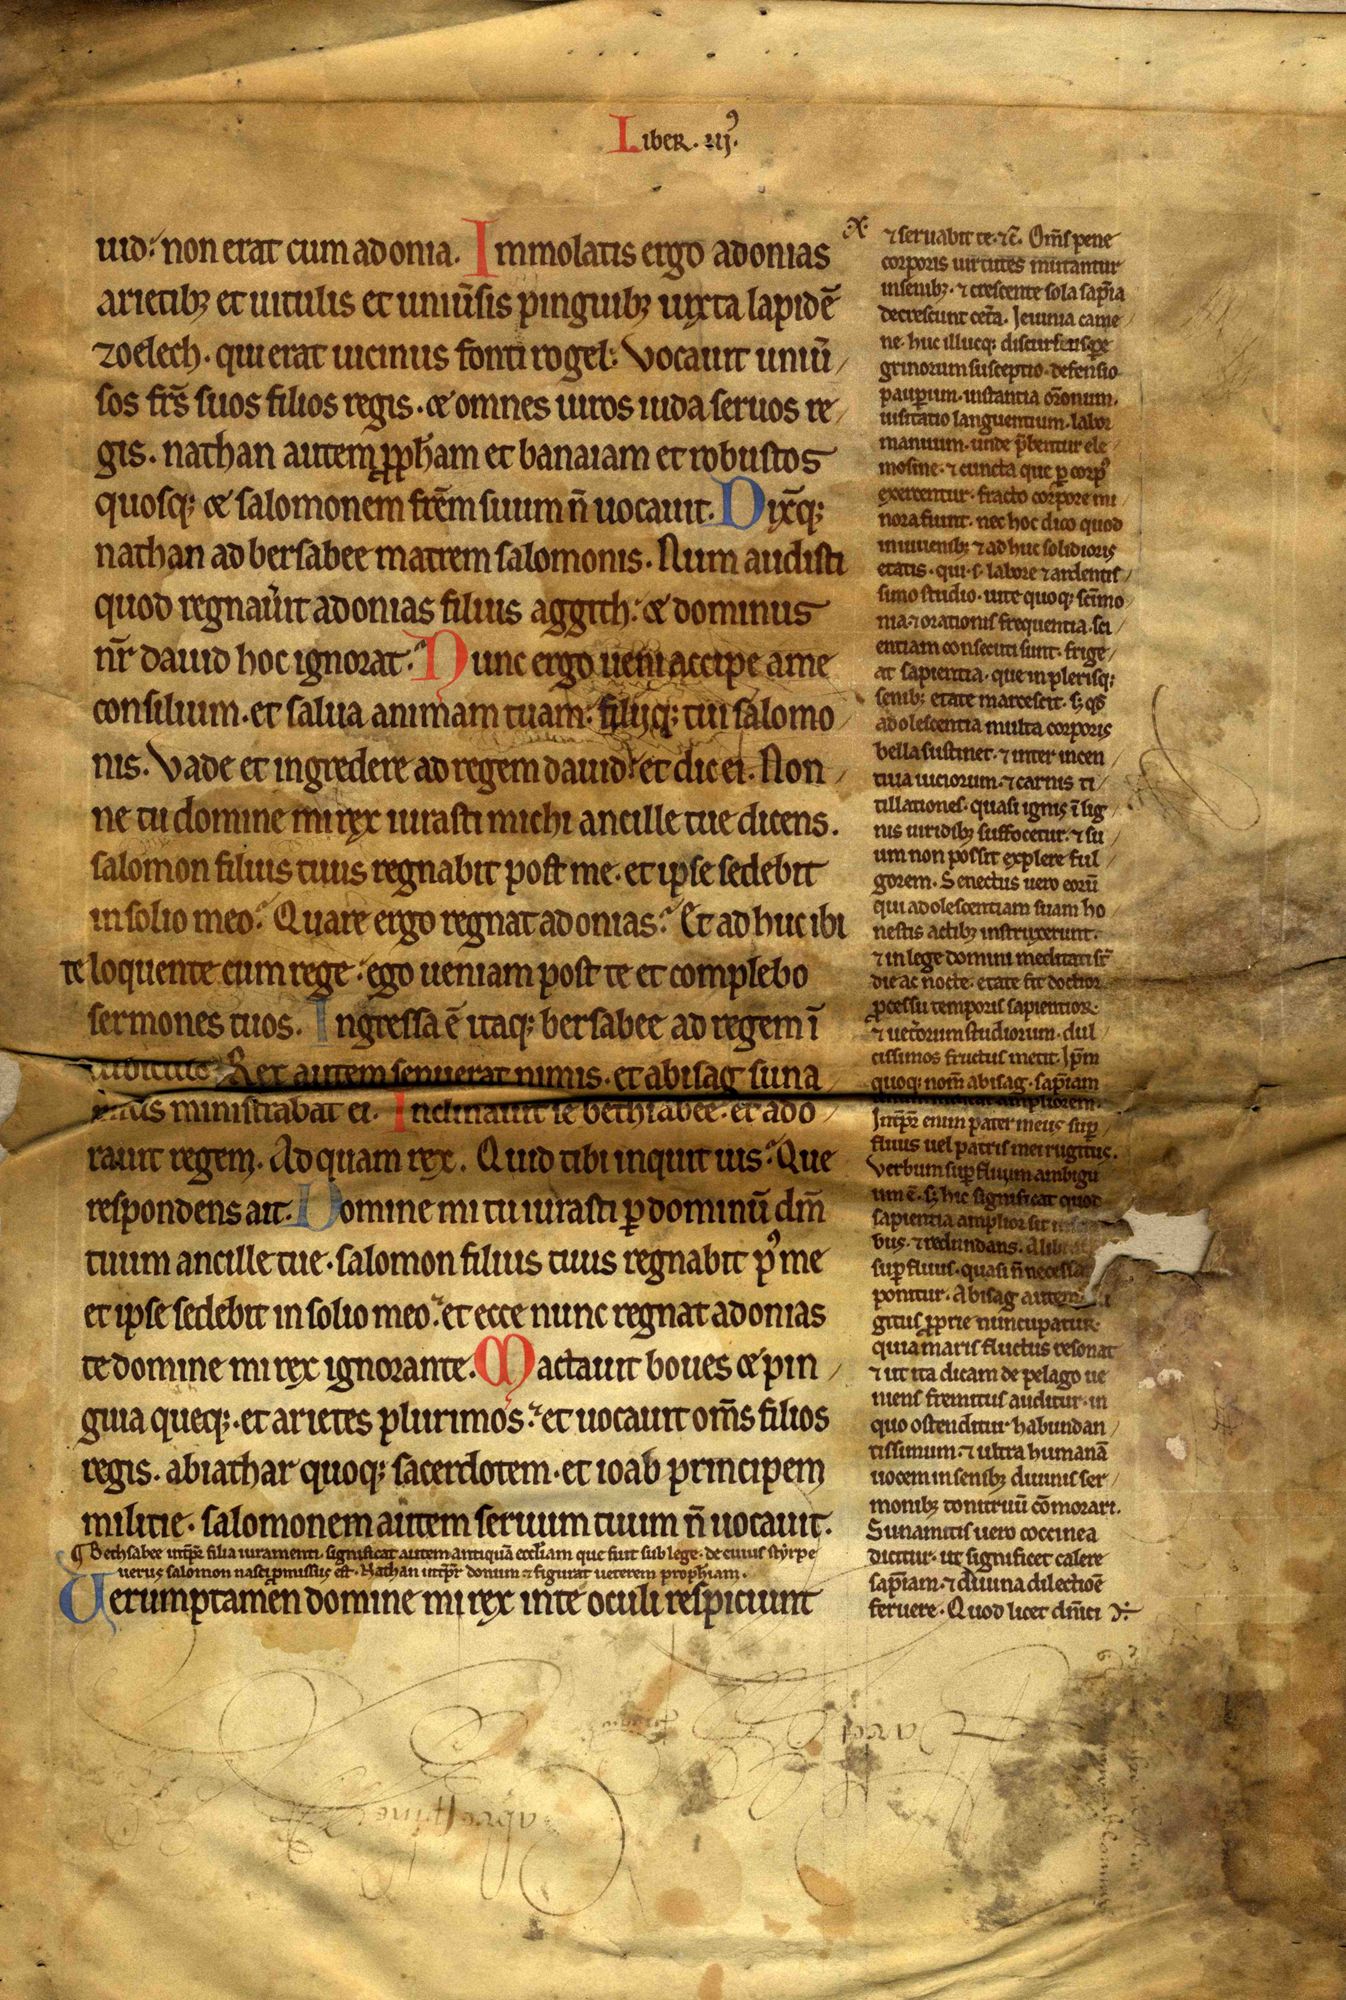 Liber .iijꝰ.
uid: non erat cum adonia. Immolatis ergo adonias
arietibꝫ et uitulis et uniūsis pinguibꝫ iuxta lapidē
zoelech. qui erat uicinus fonti rogel: vocauit uniū
sos frs̄ suos filios regis. & omnes uiros iuda seruos re
gis. nathan autem ꝓpham et banaiam et robustos
quosqꝫ & salomonem frēm suum n̄ uocauit. Dix̄qꝫ
nathan ad bersabee matrem salomonis. Num audisti
quod regnau̾it adonias filius aggith: & dominus
nr̄ dauid hoc ignorat. Nunc ergo ueni accipe a me
consilium. et salua animam tuam: filijqꝫ tui salomo
nis. Vade et ingredere ad regem dauid: et dic ei. Non
ne tu domine mi rex iurasti michi ancille tue dicens.
salomon filius tuus regnabit post me. et ipse sedebit
in solio meo. Quare ergo regnat adonias. Et adhuc ibi
te loquente cum rege. ego ueniam post te et complebo
sermones tuos. Ingressa ē itaqꝫ bersabee ad regem ī
cubiculo Rex autem senuerat nimis. et abisag suna
mitis ministrabat ei. Inclinauit se bethsabee. et ado
rauit regem. Ad quam rex. Quid tibi inquit uis. Que
respondens ait. Domine mi tu iurasti ꝑ dominū dm̄
tuum ancille tue. salomon filius tuus regnabit pꝰ me
et ipse sedebit in solio meo. et ecce nunc regnat adonias
te domine mi rex ignorante. Mactauit boues & pin
guia queqꝫ. et arietes plurimos. et uocauit om̄s filios
regis. abiathar quoqꝫ sacerdotem. et ioab principem
militie. salomonem autem seruum tuum n̄ uocauit.
¶ Bethsabee intp̄r filia iuramenti significat autem antiquā eccl̄iam que fuit sub lege. de cuius styrpe
uerus salomon nasci ꝓmissus est. Nathan intp̄r donum ⁊ figurat ueterem prophiam.
Uerumptamen domine mi rex in te oculi respiciunt
⁊ seruabit te. ⁊c̄. Om̄s pene
corporis uirtutes mutantur
in senibꝫ. ⁊ crescente sola sapīa
decrescunt cet̄a. Ieiunia came
ne. huc illucqꝫ discursus pere
grinorum susceptio. defensio
pauꝑum. instantia or̄onum.
uisitatio languentium. labor
manuum. unde p̄bentur ele
mosine. ⁊ cuncta que ꝑ corpꝰ
exercentur. fracto corpore mi
nora fiunt. nec hoc dico quod
in iuuenibꝫ ⁊ adhuc solidioris
etatis. qui .s. labore ⁊ ardentis
simo studio. uite quoqꝫ sc̄imo
nia. ⁊ orationis frequentia. sci
entiam consecuti sunt. frige
at sapientia. que in plerisqꝫ
senibꝫ etate marcescit. sꝫ qd̄
adolescentia multa corporis
bella sustinet. ⁊ inter incen
tiua uiciorum. ⁊ carnis ti
tillationes. quasi ignis ī lig
nis uiridibꝫ suffocetur. ⁊ su
um non possit explere ful
gorem. Senectus uero eorū
qui adolescentiam suam ho
nestis actibꝫ instruxerunt.
⁊ in lege domini meditati st̄
die ac nocte. etate fit doctior
ꝓcessu temporis sapientior.
⁊ uet̄orum studiorum. dul
cissimos fructus metit. Ipm̄
quoqꝫ nom̄ abisag. sapīam
ampliorem.
Intp̄r enim pater meus sup̄
fluus uel patris mei rugitus.
Verbum sup̄fluum ambigu
um ē. sꝫ hic significat quod
sapientia amplior sit in
bus. ⁊ redundans. Alibi
sup̄fluus. quasi n̄ necessa
ponitur. Abisag autem
gitus ꝓprie nuncupatur
quia maris fluctus resonat
⁊ ut ita dicam de pelago ue
niens fremitus auditur. in
quo ostenditur habundan
tissimum. ⁊ ultra humanā
uocem in senibꝫ diuini ser
monibꝫ tonitruū cōmorari.
Sunamitis uero coccinea
dicitur. ut significet calere
sapīam. ⁊ diuina dilectiōe
feruere. Quod licet dn̄ici